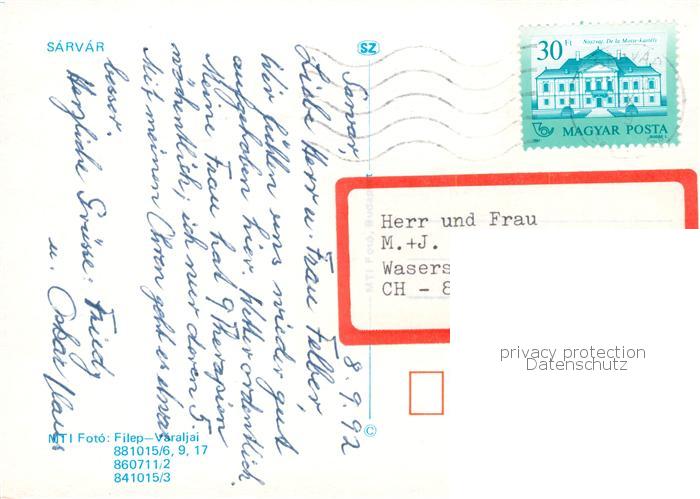 SÁRVÁR
SZ
Noszvaj. De la Motte-kastély
30 Ft
MAGYAR POSTA
Sarvar, 8.9.92
Liebe Herr u. Frau Felber,
Wir fühlen uns wieder gut
aufgehoben hier. Wetter ordentlich.
Meine Frau hat 9 Therapien
wöchentlich; ich nur deren 5.
Mit meinen Ohren geht es etwas
besser.
Herzliche Grüsse: Friedy
u. Oskar
MTI Fotó, Budapest
Herr und Frau
M.+J.
Wasers
CH - 8
privacy protection
Datenschutz
©
MTI Fotó: Filep-Váraljai
881015/6, 9, 17
860711/2
841015/3